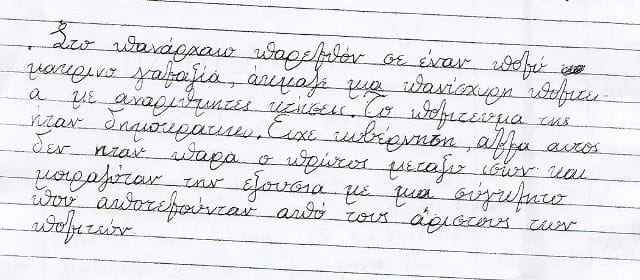 . Στο πανάρχαιο παρελθόν σε έναν πολύ
μακρινο γαλαξία, άκμαζε μια πανίσχυρη πολιτεί-
α με αναρίθμητες κτήσεις. Το πολίτευμα της
ήταν δημοκρατικο. Είχε κυβέρνηση, αλλα αυτος
δεν ηταν παρα ο πρώτος μεταξυ ισων και
μοιραζόταν την εξουσια με μια σύγκλητο
που αποτελούνταν από τους άριστους των
πολιτών